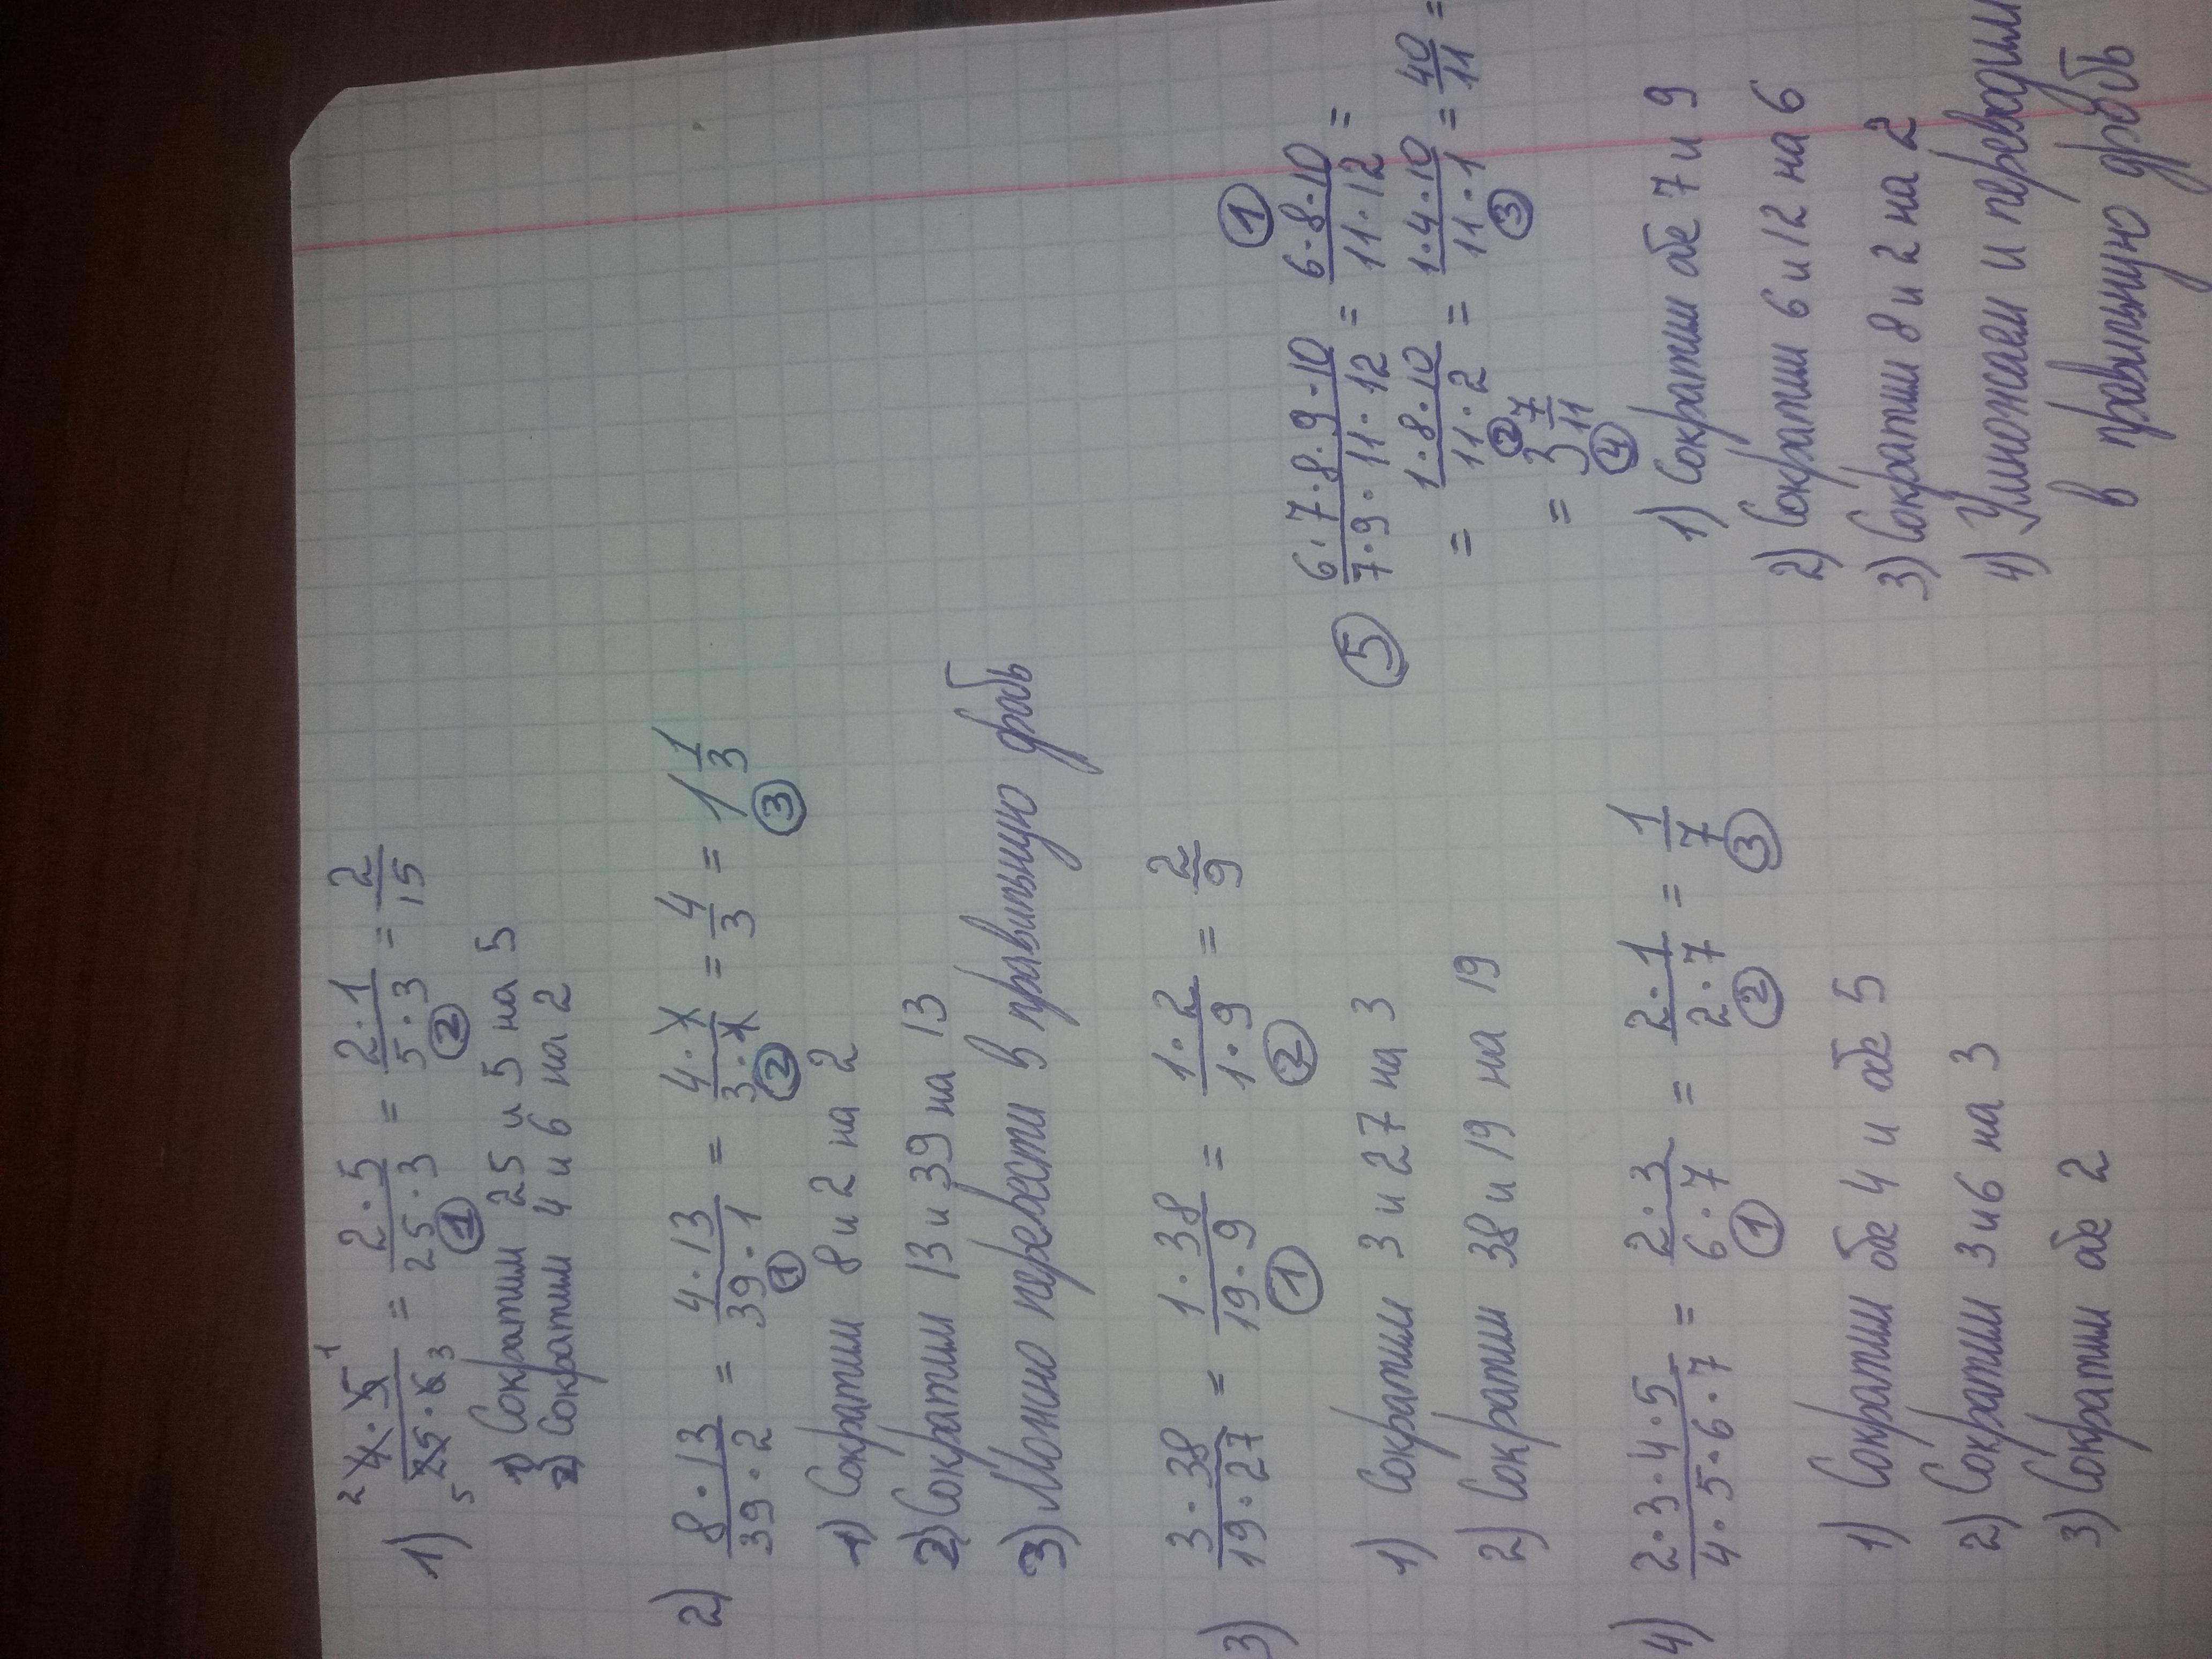 1) 2 4·5 1 / 5 25·6 3 = 2·5 / 25·3 = 2·1 / 5·3 = 2/15
① ②
1) Сократим 25 и 5 на 5
2) Сократим 4 и 6 на 2
2) 8·13 / 39·2 = 4·13 / 39·1 = 4·1 / 3·1 = 4/3 = 1 1/3
① ② ③
1) Сократим 8 и 2 на 2
2) Сократим 13 и 39 на 13
3) Можно перевести в правильную дробь
3) 3·38 / 19·27 = 1·38 / 19·9 = 1·2 / 1·9 = 2/9
① ②
1) Сократим 3 и 27 на 3
2) Сократим 38 и 19 на 19
4) 2·3·4·5 / 4·5·6·7 = 2·3 / 6·7 = 2·1 / 2·7 = 1/7
① ② ③
1) Сократим обе 4 и обе 5
2) Сократим 3 и 6 на 3
3) Сократим обе 2
①
⑤ 6·7·8·9·10 / 7·9·11·12 = 6·8·10 / 11·12 =
= 1·8·10 / 11·2 = 1·4·10 / 11·1 = 40/11 =
② ③
= 3 7/11
④
1) Сократим обе 7 и 9
2) Сократим 6 и 12 на 6
3) Сократим 8 и 2 на 2
4) Умножаем и переводим
в правильную дробь